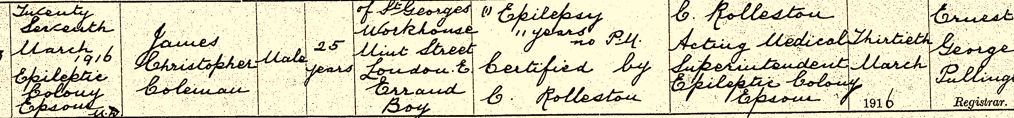 Twenty
Seventh
March 1916
Epileptic
Colony
Epsom U.D.
James
Christopher
Coleman
Male
25
years
of St Georges
Workhouse
Mint Street
London. E.
Errand
Boy
(1) Epilepsy
11 years
no P.M.
Certified by
C. Rolleston
C. Rolleston
Acting Medical
Superintendent
Epileptic Colony
Epsom
Thirtieth
March
1916
Ernest
George
Pulling
Registrar.